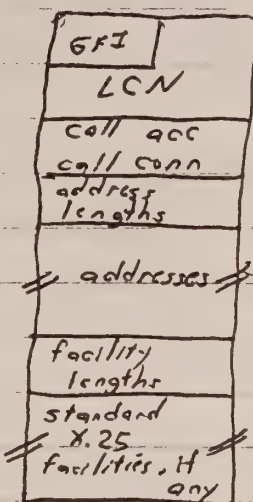 GFI
LCN
call acc
call conn
address
lengths
addresses
facility
lengths
standard
X.25
facilities, if
any